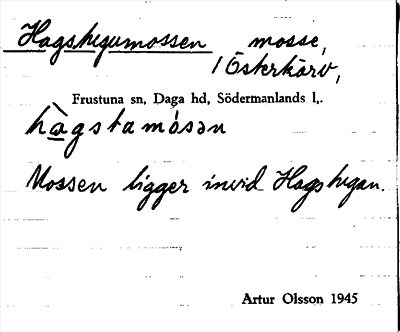 Hagstugumossen mosse,
/ Österkärv,
Frustuna sn, Daga hd, Södermanlands l,.
hàgstamósən
Mossen ligger invid Hagstugan.
Artur Olsson 1945